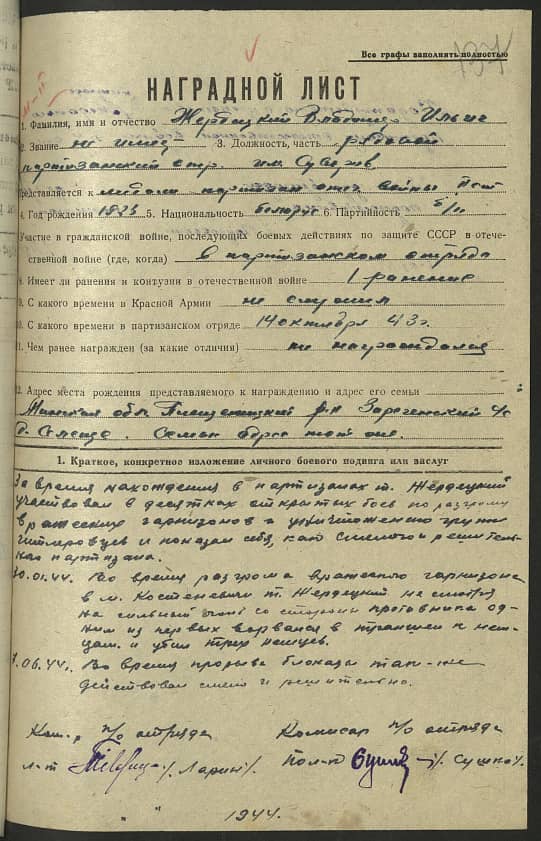 Все графы заполнять полностью
137
НАГРАДНОЙ ЛИСТ
1. Фамилия, имя и отчество Жердецкий Ильич
2. Звание не имеет 3. Должность, часть рядовой
партизанский отр. им. Суворов
Представляется к медали партизан отеч войны II ст
4. Год рождения 1923 5. Национальность белорус 6. Партийность б/п
Участие в гражданской войне, последующих боевых действиях по защите СССР в отече-
ственной войне (где, когда) в партизанском отряде
8. Имеет ли ранения и контузии в отечественной войне 1 ранение
9. С какого времени в Красной Армии не служил
10. С какого времени в партизанском отряде 14 октября 43 г.
11. Чем ранее награжден (за какие отличия) не награждался
12. Адрес места рождения представляемого к награждению и адрес его семьи
Минская обл Плещеницкий р-н с/с
д. Семьи адрес тот же.
1. Краткое, конкретное изложение личного боевого подвига или заслуг
За время нахождения в партизанах т. Жердецкий
участвовал в десятках открытых боев по разгрому
вражеских гарнизонов и уничтожению групп
гитлеровцев и показал себя, как смелого и решитель-
ного партизана.
30.01.44. Во время разгрома вражеского гарнизона
в м. Костеневичи т. Жердецкий не смотря
на сильный огонь со стороны противника од-
ним из первых ворвался в траншеи к нем-
цам и убил трех немцев.
06.44г. Во время прорыва блокады так-же
действовал смело и решительно.
Ком-р п/о отряда Комисар п/о отряда
л-т /Ларин/ пол-к /Сушко/
1944.